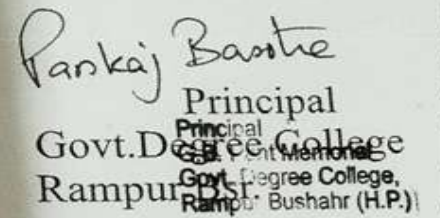 Pankaj Basotra
Principal
Govt.Degree College
Rampur Bsr.
Principal
G.B. Pant Memorial
Govt. Degree College,
Rampur Bushahr (H.P.)